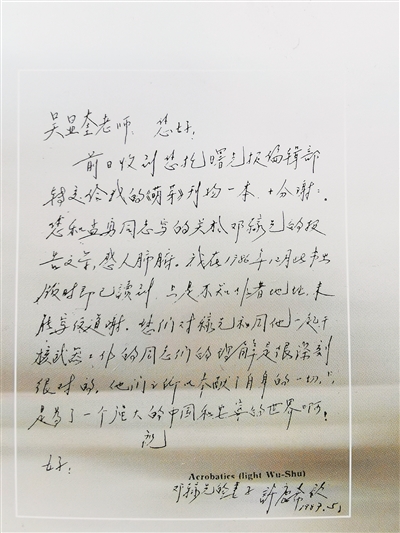 吴显奎老师：您好！
前日收到您托曙光报编辑部
转交给我的萌芽刊物一本，十分谢谢。
您和孟勇同志写的关於邓稼先的报
告文学，感人肺腑。我在1986年12月出
版时即已读到，只是不知作者地址，未
能写信道谢。您们对稼先和同他一起干
核武器工作的同志们的理解是很深刻
很对的。他们之所以奉献自身的一切，
是为了一个强大的中国和安宁的世界啊！
祝
好！
Acrobatics (light Wu-Shu)
邓稼先的妻子 许鹿希